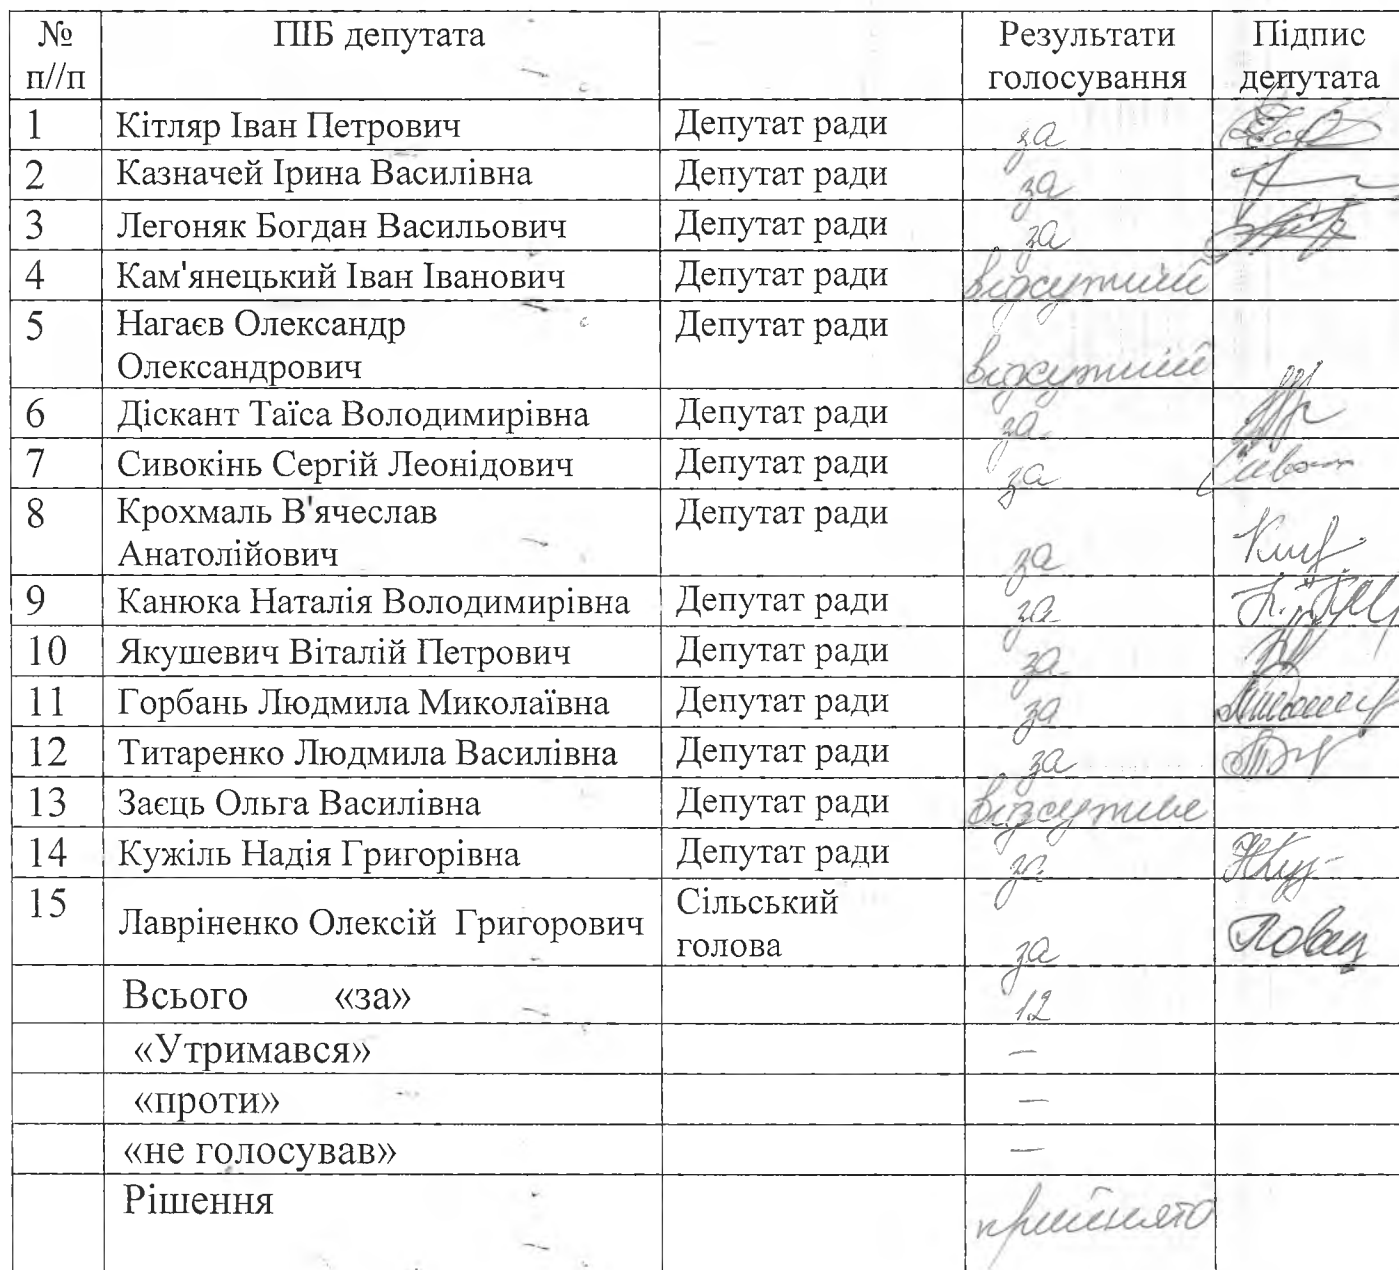 № п//п ПІБ депутата Результати голосування Підпис депутата
1 Кітляр Іван Петрович Депутат ради за
2 Казначей Ірина Василівна Депутат ради за
3 Легоняк Богдан Васильович Депутат ради за
4 Кам'янецький Іван Іванович Депутат ради відсутній
5 Нагаєв Олександр Депутат ради
Олександрович відсутній
6 Діскант Таїса Володимирівна Депутат ради за
7 Сивокінь Сергій Леонідович Депутат ради за
8 Крохмаль В'ячеслав Депутат ради
Анатолійович за
9 Канюка Наталія Володимирівна Депутат ради за
10 Якушевич Віталій Петрович Депутат ради за
11 Горбань Людмила Миколаївна Депутат ради за
12 Титаренко Людмила Василівна Депутат ради за
13 Заєць Ольга Василівна Депутат ради відсутня
14 Кужіль Надія Григорівна Депутат ради за
15 Лавріненко Олексій Григорович Сільський
голова за
Всього «за» 12
«Утримався» —
«проти» —
«не голосував» —
Рішення прийнято